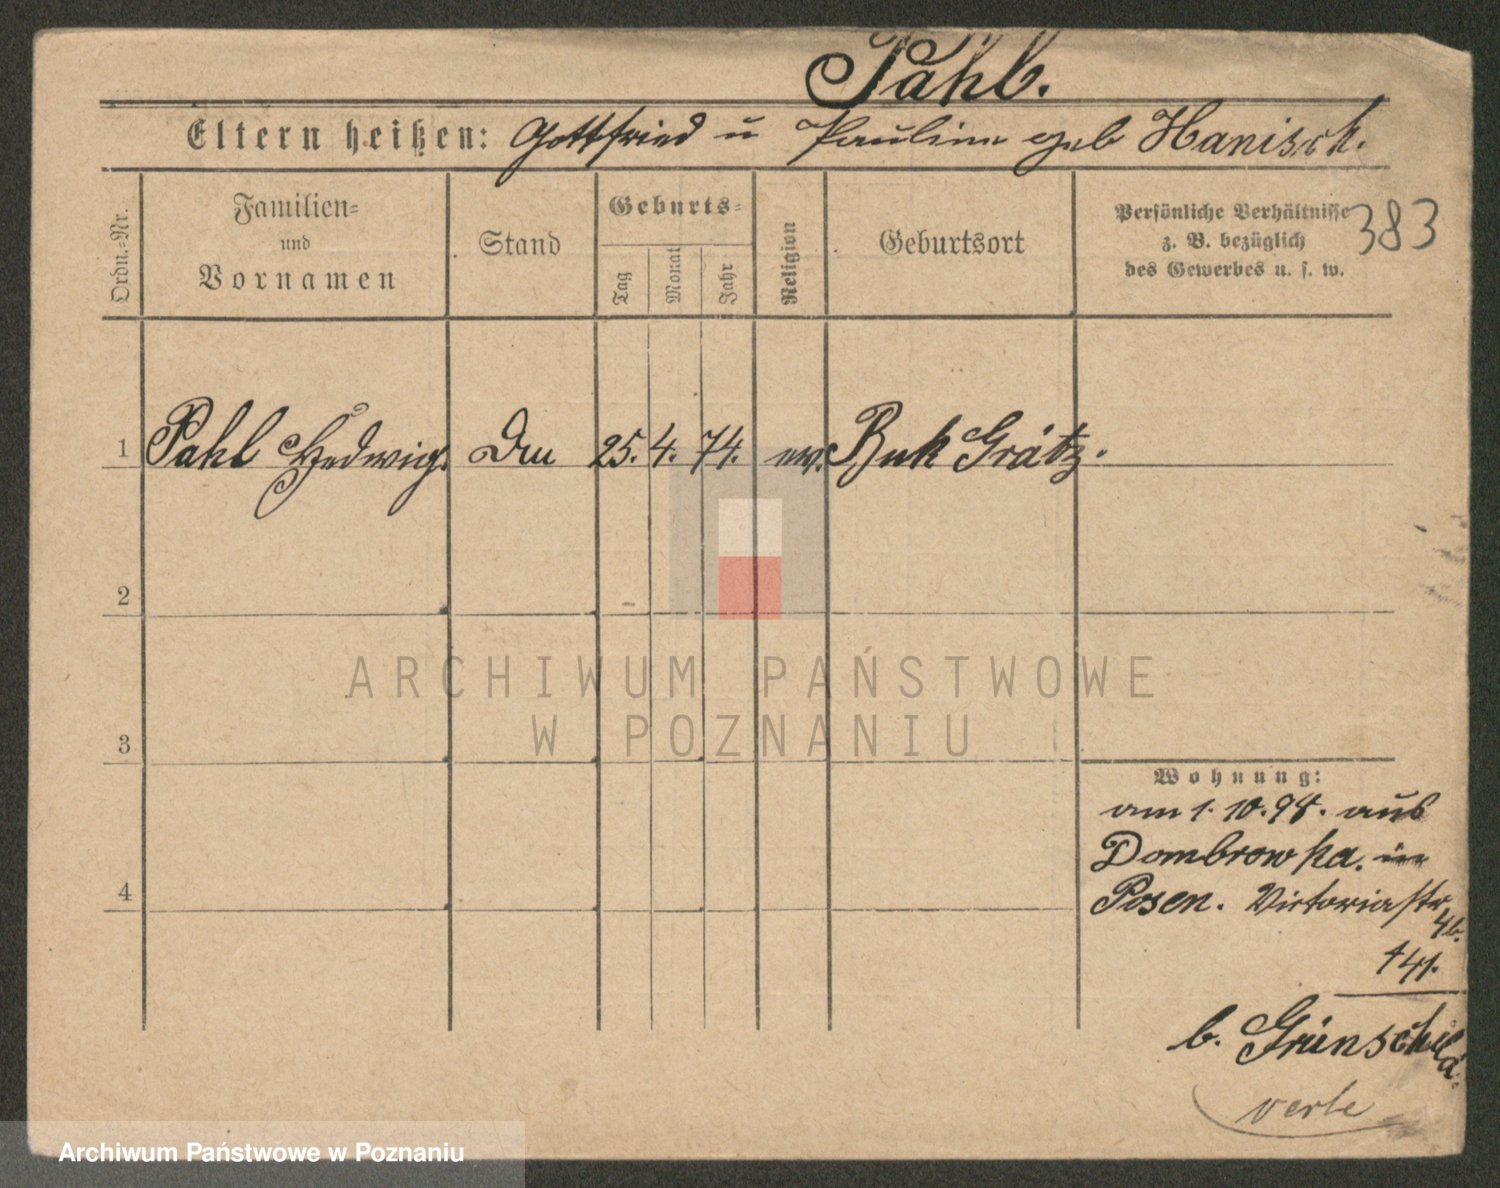 Pahl.
Eltern heißen: Gottfried u Pauline geb Hanisch.
Ordn.-Nr.
Familien-
und
Vornamen
Stand
Geburts-
Tag
Monat
Jahr
Religion
Geburtsort
Persönliche Verhältnisse
z. B. bezüglich
des Gewerbes u. s. w.
383
1 Pahl Hedwig. 25. 4. 74. ev. Buk Grätz.
2
3
4
ARCHIWUM PAŃSTWOWE
W POZNANIU
Wohnung:
am 1. 10. 98. aus
Dombrowka. in
Posen. Victoriastr.
b. Grünschild.
Archiwum Państwowe w Poznaniu